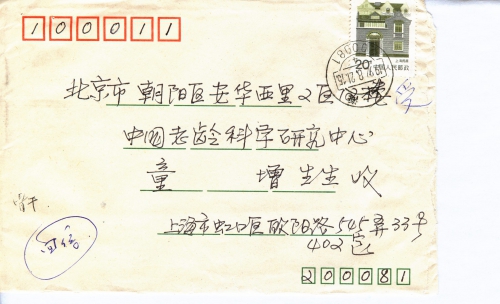 100011
北京市 朝阳区安华西里2区13楼
20分
上海民居
中国人民邮政
中国老龄科学研究中心
童 增 先生 收
回信
上海市虹口区欧阳路545弄33号
402室
200081